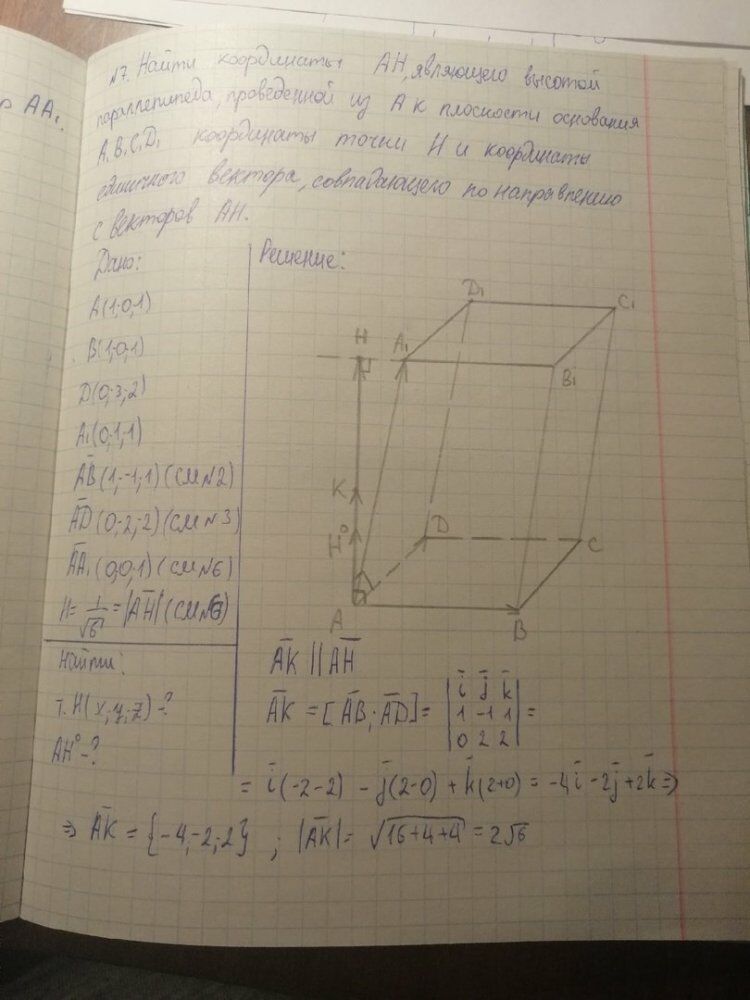 р АА₁.
№7. Найти координаты АН, являющего высотой
параллепипеда, проведенной из А к плоскости основания
A₁B₁C₁D₁ координаты точки Н и координаты
единичного вектора, совпадающего по направлению
с векторов АН.
Дано:
A(1;0;1)
B(1;0;1)
D(0;3;2)
A₁(0;1;1)
A̅B̅(1;-1;1)(см№2)
A̅D̅(0;2;2)(см№3)
A̅A̅₁(0;0;1)(см№6)
H=1/√6=|A̅H̅|(см№6)
Найти:
т.H(x;y;z)-?
AH⁰-?
Решение:
D₁
C₁
H
A₁
B₁
K
H⁰
D
C
A
B
A̅K̅ || A̅H̅
A̅K̅ = [A̅B̅; A̅D̅] = | i̅ j̅ k̅ |
| 1 -1 1 | =
| 0 2 2 |
= i̅(-2-2) - j̅(2-0) + k̅(2+0) = -4i̅-2j̅+2k̅ ⇒
⇒ A̅K̅ = {-4;-2;2} ; |A̅K̅| = √(16+4+4) = 2√6